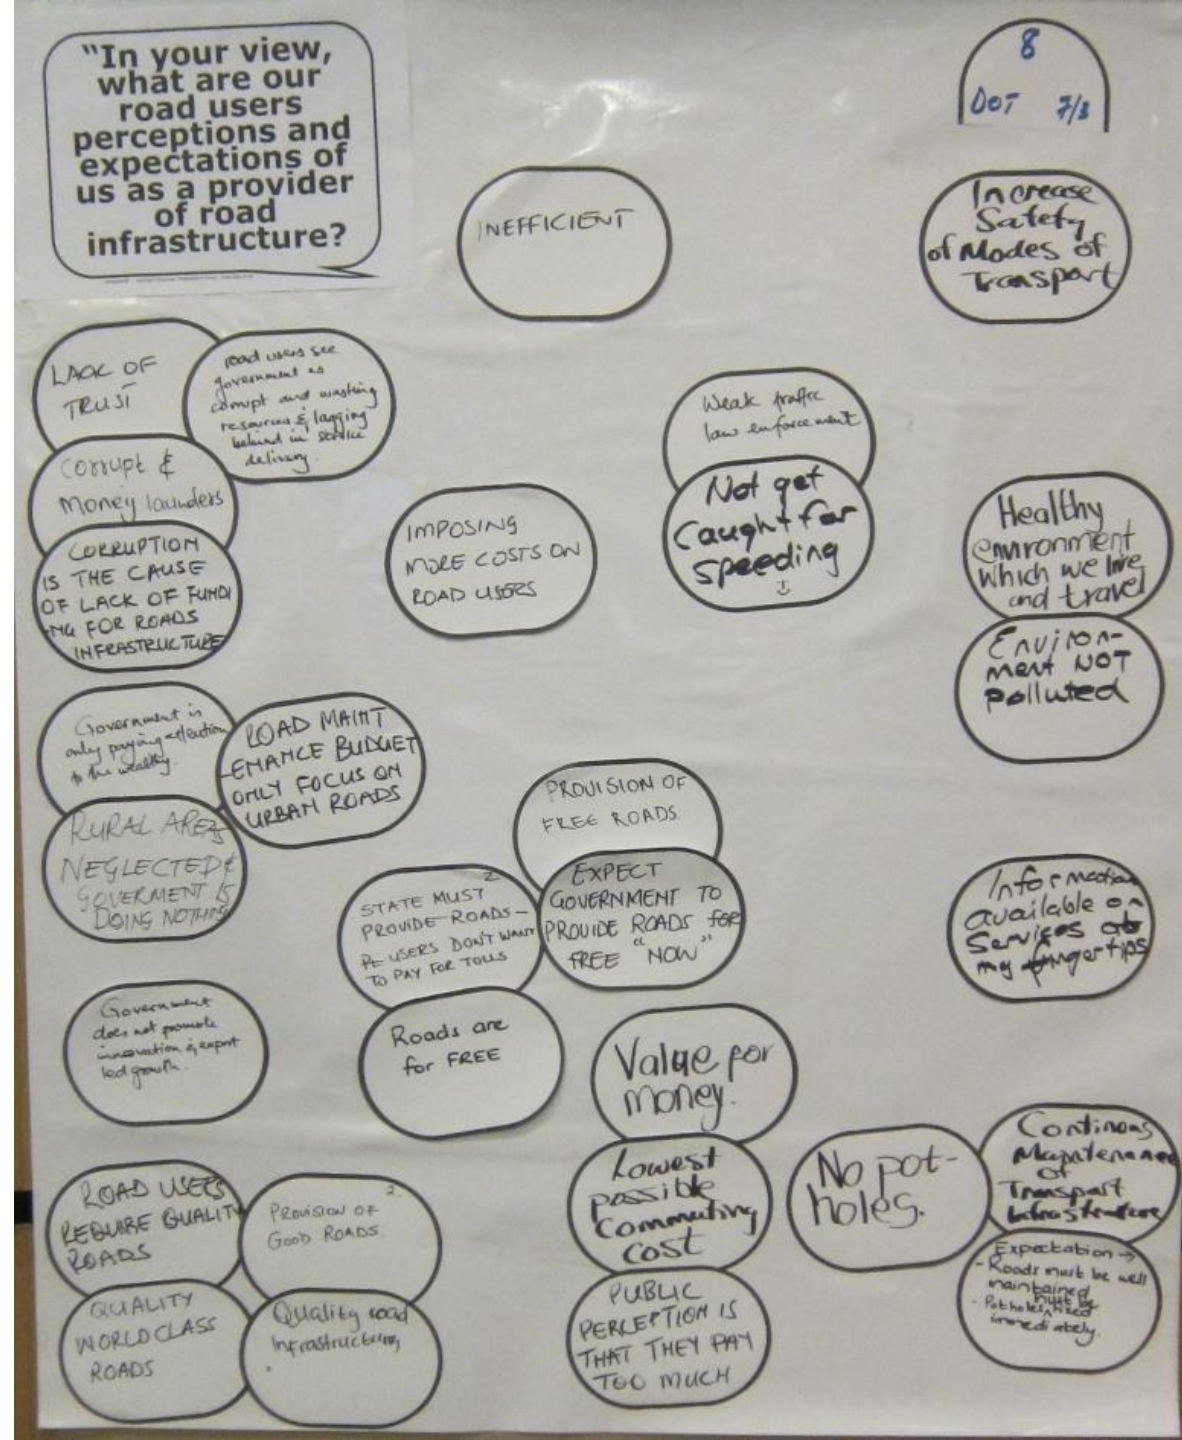 "In your view,
what are our
road users
perceptions and
expectations of
us as a provider
of road
infrastructure?
8
DOT 7/8
INEFFICIENT
Increase
Safety
of Modes of
Transport
LACK OF
TRUST
road users see
government as
corrupt and wasting
resources & lagging
behind in service
delivery.
Corrupt &
Money launders
CORRUPTION
IS THE CAUSE
OF LACK OF FUNDI
-NG FOR ROADS
INFRASTRUCTURE
IMPOSING
MORE COSTS ON
ROAD USERS
Weak traffic
law enforcement
Not get
Caught for
speeding
Healthy
environment
which we live
and travel
Environ-
ment NOT
polluted
Government is
only paying attention
to the wealthy.
ROAD MAINT
-ENANCE BUDGET
ONLY FOCUS ON
URBAN ROADS
RURAL AREAS
NEGLECTED &
GOVERMENT IS
DOING NOTHING
PROVISION OF
FREE ROADS
EXPECT
GOVERNMENT TO
PROVIDE ROADS FOR
FREE "NOW"
2
STATE MUST
PROVIDE ROADS -
USERS DON'T WANT
TO PAY FOR TOLLS
Roads are
for FREE
Information
available on
Services at
my fingertips
Government
does not promote
innovation & export
led growth.
Value for
money.
Lowest
possible
Commuting
Cost
PUBLIC
PERCEPTION IS
THAT THEY PAY
TOO MUCH
No pot-
holes.
Continous
Maintenance
of
Transport
Infrastructure
Expectation →
- Roads must be well
maintained
- Potholes must be fixed
immediately.
ROAD USERS
REQUIRE QUALITY
ROADS
2.
PROVISION OF
GOOD ROADS.
QUALITY
WORLD CLASS
ROADS
Quality road
Infrastructure